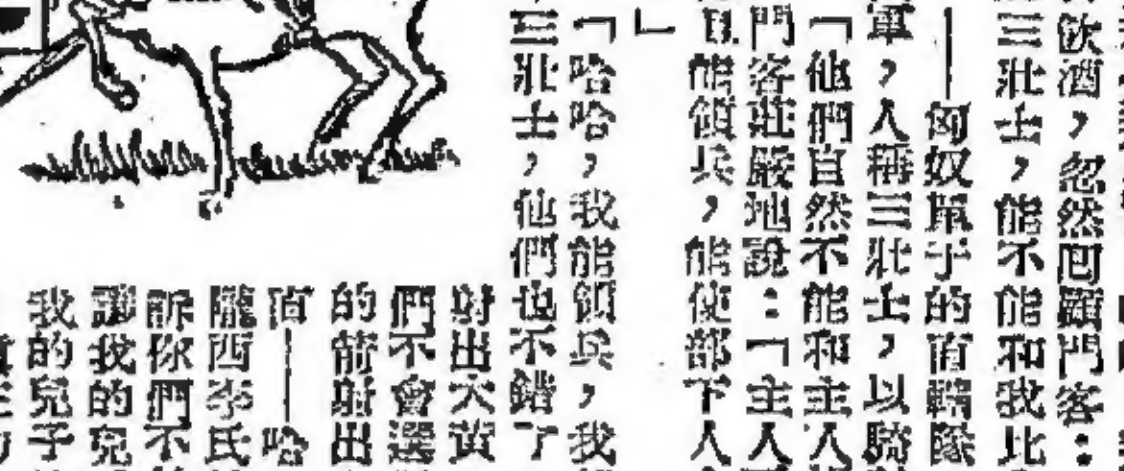 飲酒，忽然回顧門客：
三壯士，能不能和我比
——匈奴單于的直轄隊
軍，人稱三壯士，以騎
「他們自然不能和主人
門客莊嚴地說：「主人
能領兵，能使部下人
」
「哈哈，我能領兵，我
三壯士，他們也不錯了
射出大黃
們不會選
的箭射出
直——哈
隴西李氏
訴你們不
讓我的兒
我的兒子